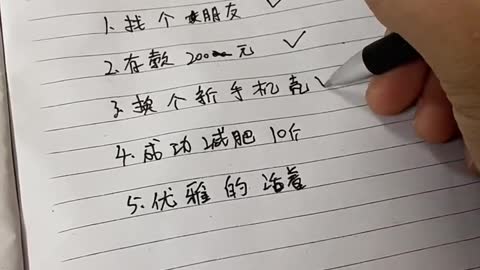 1.找个朋友
2.存款200元
3.换个新手机壳
4.成功减肥10斤
5.优雅的活着